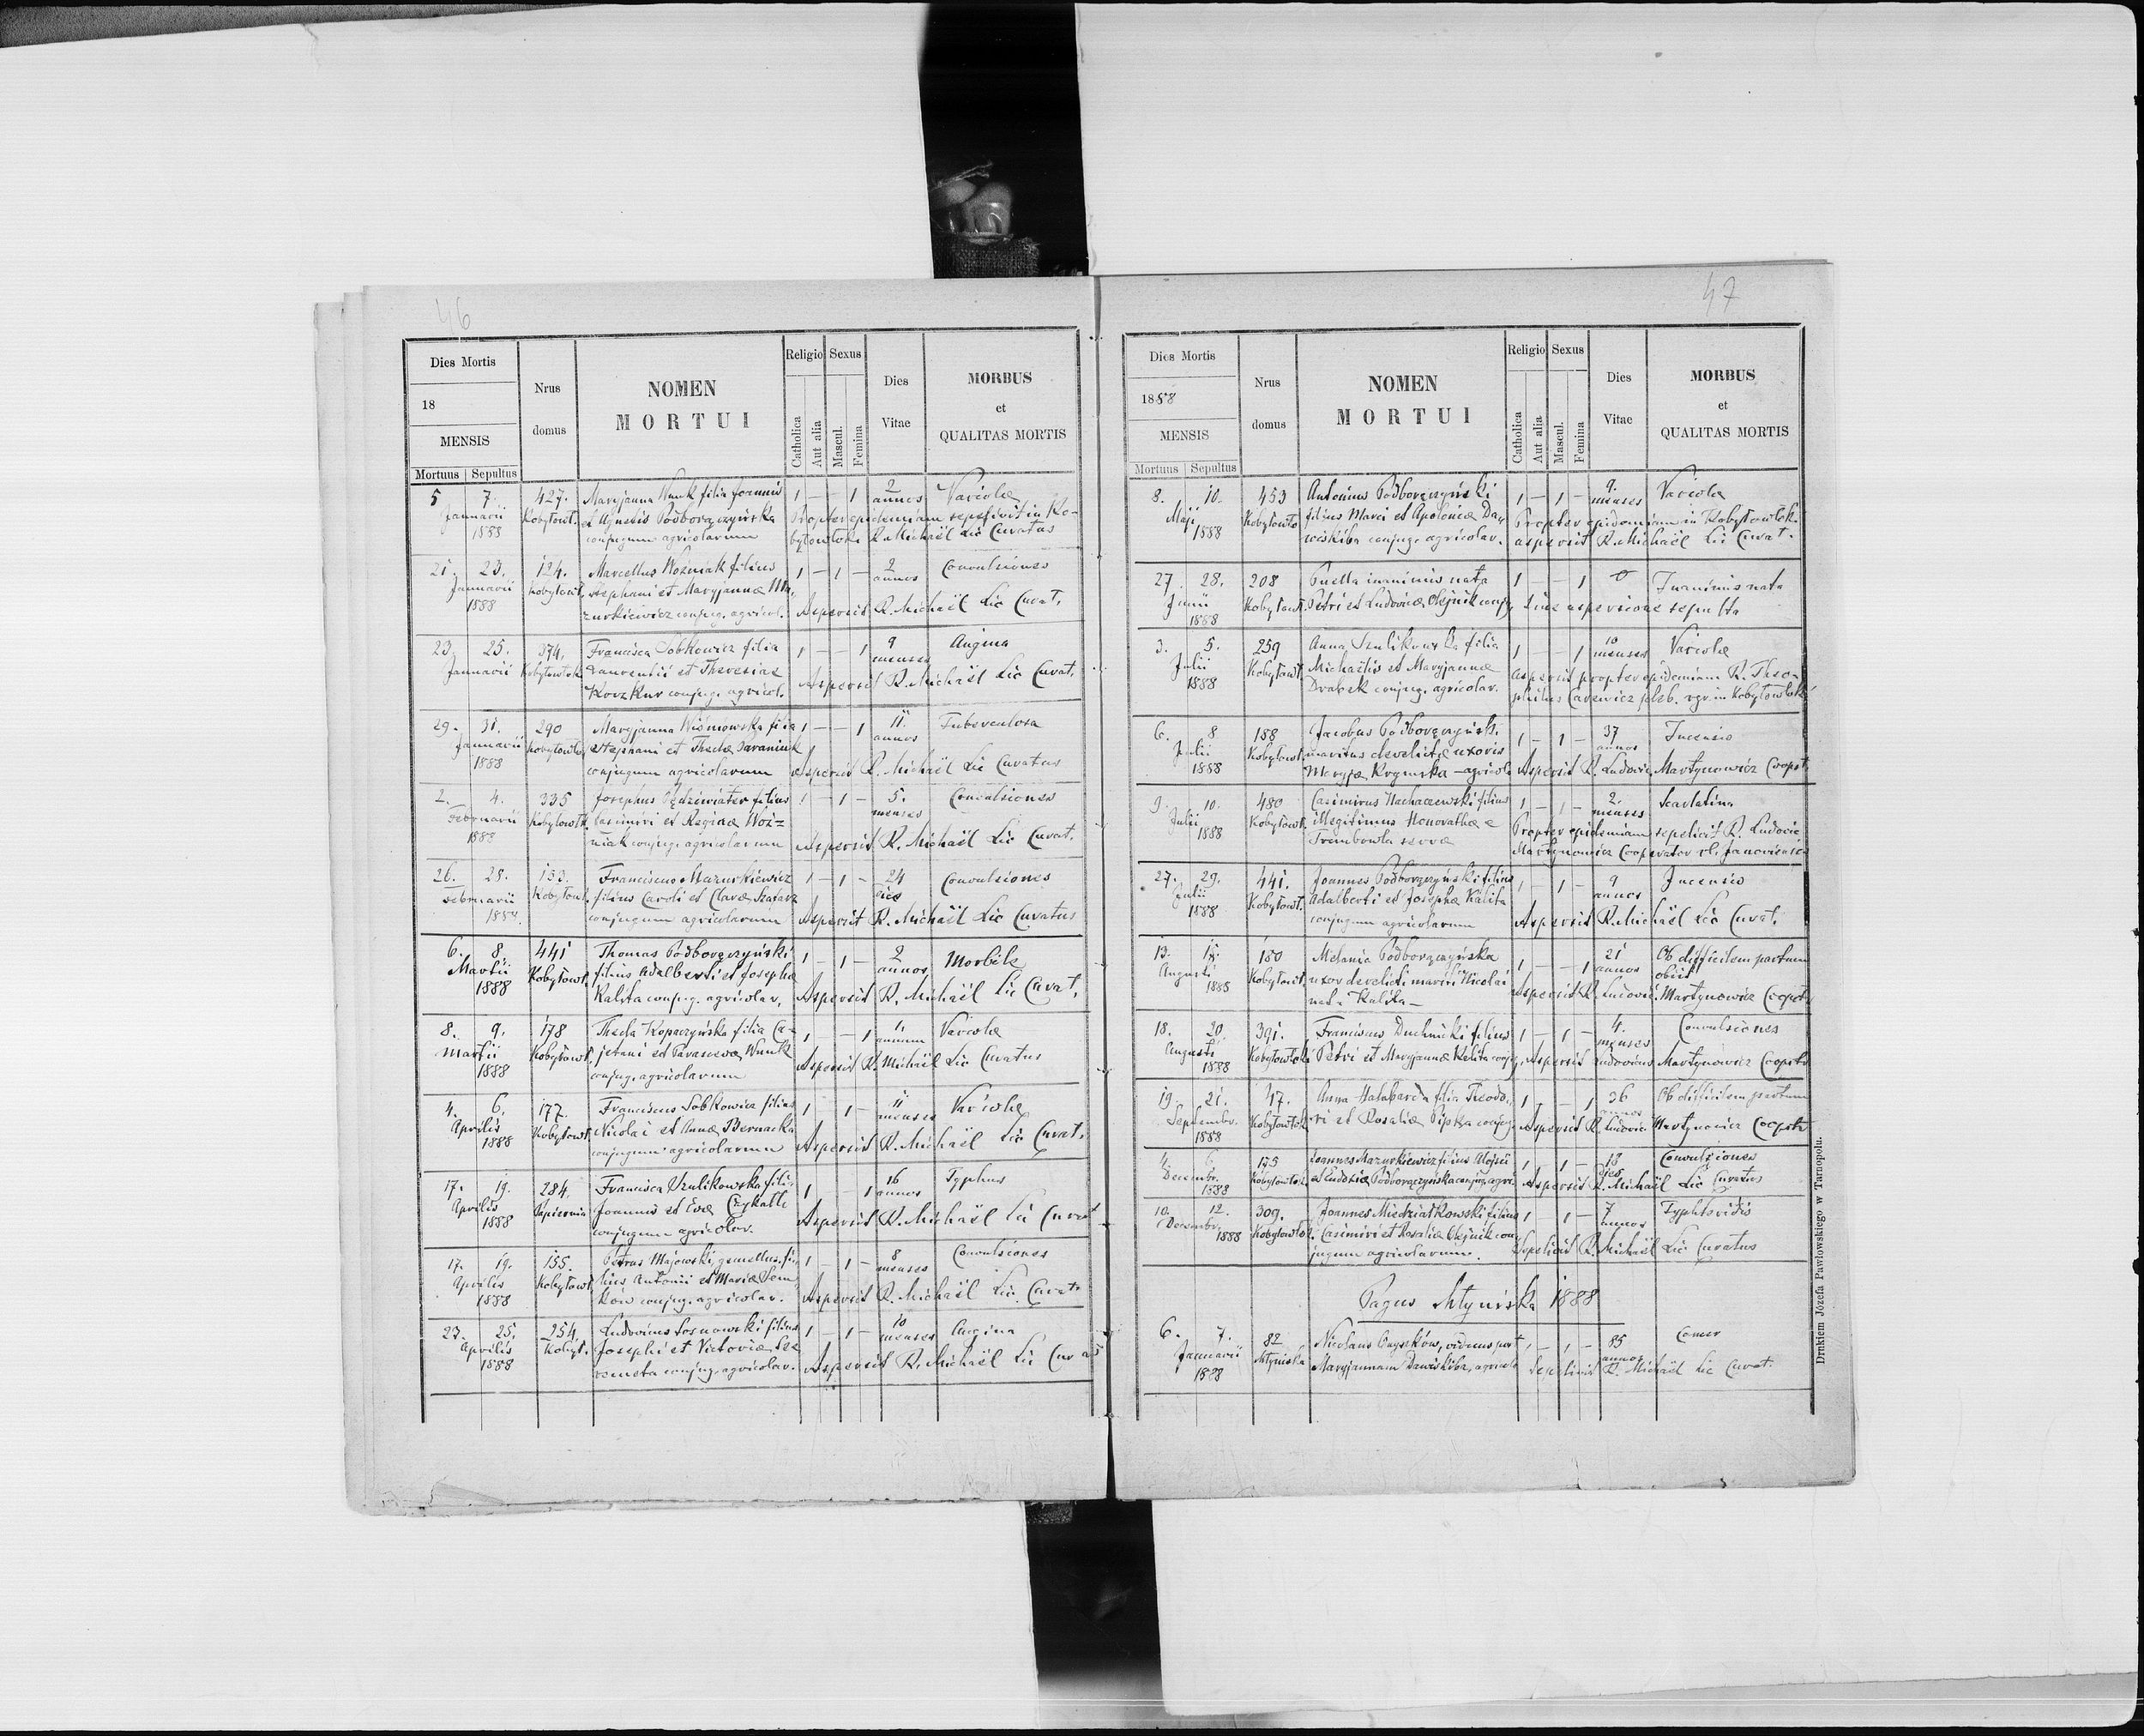 46
Dies Mortis
18
MENSIS
Mortuus Sepultus
Nrus
domus
NOMEN
MORTUI
Religio Sexus
Catholica
Aut alia
Mascul.
Femina
Dies
Vitae
MORBUS
et
QUALITAS MORTIS
5 7. 427. Maryjanna Wnuk filia Joannis 1 — — 1 2 Variolæ
Januarii Kobyłowł. et Agnetis Podborączyńska annos
Propter epidemiam sepelivit in Ko-
1888 conjugum agricolarum byłowłoki R. Michaël Lic Curatus
21. 23. 124. Marcellus Woźniak filius 1 — 1 — 2 Convulsiones
Januarii Kobyłowł. Stephani et Maryjannæ Ma- annos
1888 zurkiewicz conjug. agricol. Aspersit R. Michaël Lic Curat.
23. 25. 374. Francisca Sobkowicz filia 1 — — 1 9 Angina
Januarii Kobyłowłok. Laurentii et Theresiae menses
Korzkur conjug. agricol. Aspersit R. Michaël Lic Curat.
29. 31. 290 Maryjanna Wiśniowska filia 1 — — 1 11. Tuberculosa
Januarii Kobyłowłok. Stephani et Theclæ Baraniuk annos
1888 conjugum agricolarum Aspersit R. Michaël Lic Curatus
2. 4. 335 Josephus filius 1 — 1 — 5. Convulsiones
Februarii Kobyłowł. Casimiri et Reginæ Woź= menses
1888 niak conjug. agricolarum Aspersit R. Michaël Lic Curat.
26. 28. 133. Franciscus Mazurkiewicz 1 — 1 — 24 Convulsiones
Februarii Kobyłowł. filius Caroli et Claræ dies
1888. conjugum agricolarum Aspersit R. Michaël Lic Curatus
6. 8. 441 Thomas Podborączyński 1 — 1 — 2 Morbili
Martii Kobyłowł. filius Adalberti et Josephæ annos
1888 Kalita conjug. agricolar. Aspersit R. Michaël Lic Curat.
8. 9. 178 Thecla Kopaczyńska filia Ca- 1 — — 1 1. Variolæ
Martii Kobyłowł. jetani et Parascevæ Wnuk annum
1888 conjug. agricolarum Aspersit R. Michaël Lic Curatus
4. 6. 177. Franciscus Sobkowicz filius 1 — 1 — 11 Variolæ
Aprilis Kobyłowł. Nicolai et Annæ Bernacka menses
1888 conjugum agricolarum Aspersit R. Michaël Lic Curat.
17. 19. 284. Francisca Szulikowska filia 1 — — 1 16 Typhus
Aprilis Papiernia Joannis et Evæ annos
1888 conjugum agricolar. Aspersit R. Michaël Lic Curat
17. 19. 155. Petrus Majowski, gemellus, fi- 1 — 1 — 8 Convulsiones
Aprilis Kobyłowł. lius Antonii et Mariæ Sem menses
1888 ków conjug. agricolar. Aspersit R. Michaël Lic Curat.
23. 25. 254. Ludovicus Sosnowski filius 1 — 1 — 10 Angina
Aprilis Kobył. Josephi et Victoriæ Sze menses
1888 remeta conjug. agricolar. Aspersit R. Michaël Lic Curat
47
Dies Mortis
1888
MENSIS
Mortuus Sepultus
Nrus
domus
NOMEN
MORTUI
Religio Sexus
Catholica
Aut alia
Mascul.
Femina
Dies
Vitae
MORBUS
et
QUALITAS MORTIS
8. 10. 453 Antonius Podborączyński 1 — 1 — 9. Variolæ
Maji Kobyłowło filius Marci et Apoloniæ Da- menses
1888 conjug. agricolar. Propter epidemiam in Kobyłowłok.
aspersit R. Michaël Lic Curat.
27. 28. 208 Puella inanimis nata 1 — — 1 0 Inanimis nata
Junii Kobyłowł. Petri et Ludovicæ Olejnik conjug. sine aspersione sepulta
1888
3. 5. 259 Anna Szulikowska filia 1 — — 1 10 Variolæ
Julii Kobyłowł. Michaëlis et Maryjannæ menses
1888 Dvorek conjug. agricolar. Aspersit propter epidemiam R. Theo-
philus Carewicz pleb. vgr. in Kobyłowłoki
6. 8 188 Jacobus Podborączyński 1 — 1 — 37 Incensio
Julii Kobyłowł. maritus derelictæ uxoris annos
1888 Maryjæ — agricola Aspersit R. Ludovic. Martynowicz Coopt.
9. 10. 480 Casimirus Machaczewski filius 1 — 1 — 2. Scarlatina
Julii Kobyłowł. illegitimus Honorathæ e menses
1888 Trembowla servæ Propter epidemiam sepelivit R. Ludovic
Martynowicz Cooperator Janoviensis
27. 29. 441. Joannes Podborączyński filius 1 — 1 — 9 Incensio
Julii Kobyłowł. Adalberti et Josephæ Kalita annos
1888 conjugum agricolarum Aspersit R. Michaël Lic Curat.
13. 15. 180 Melania Podborączyńska 1 — — 1 21 Ob difficilem partum
Augusti Kobyłowł. uxor derelicti mariti Nicolai annos obiit
1888 nata Kalita — Aspersit R. Ludovic. Martynowicz Coopt.
18. 20. 391. Franciscus Duchnicki filius 1 — 1 — 4. Convulsiones
Augusti Kobyłowłoki Petri et Maryjannæ Kalita conjug. menses
1888 Aspersit Ludovicus Martynowicz Cooptr
19. 21. 47. Anna Halabarda filia Theodo- 1 — — 1 36 Ob difficilem partum
Septembr. Kobyłowłok. ri et Rosaliæ Pipka conjug. annos
1888 Aspersit R. Ludovic Martynowicz Cooptr
4. 6. 175 Joannes Mazurkiewicz filius Aloisii 1 — 1 — 18 Convulsiones
Decembr. Kobyłowłok. et Eudoxiæ Podborączyńska conjug. agri. dies
1888 Aspersit R. Michaël Lic Curatus
10. 12. 309. Joannes Miedziatkowski filius 1 — 1 — 7 Typhtoidis
Decembr. Kobyłowłok. Casimiri et Rosaliæ Olejnik con- annos
1888 jugum agricolarum. Sepelivit R. Michaël Lic Curatus
Pagus Młyniska 1888
6. 7. 82 Nicolaus Onyszków, viduus post 1 — 1 — 85 Cancer
Januarii Młyniska Maryjannam agricola annos
1888 Sepelivit R. Michaël Lic Curat.
Drukiem Józefa Pawłowskiego w Tarnopolu.